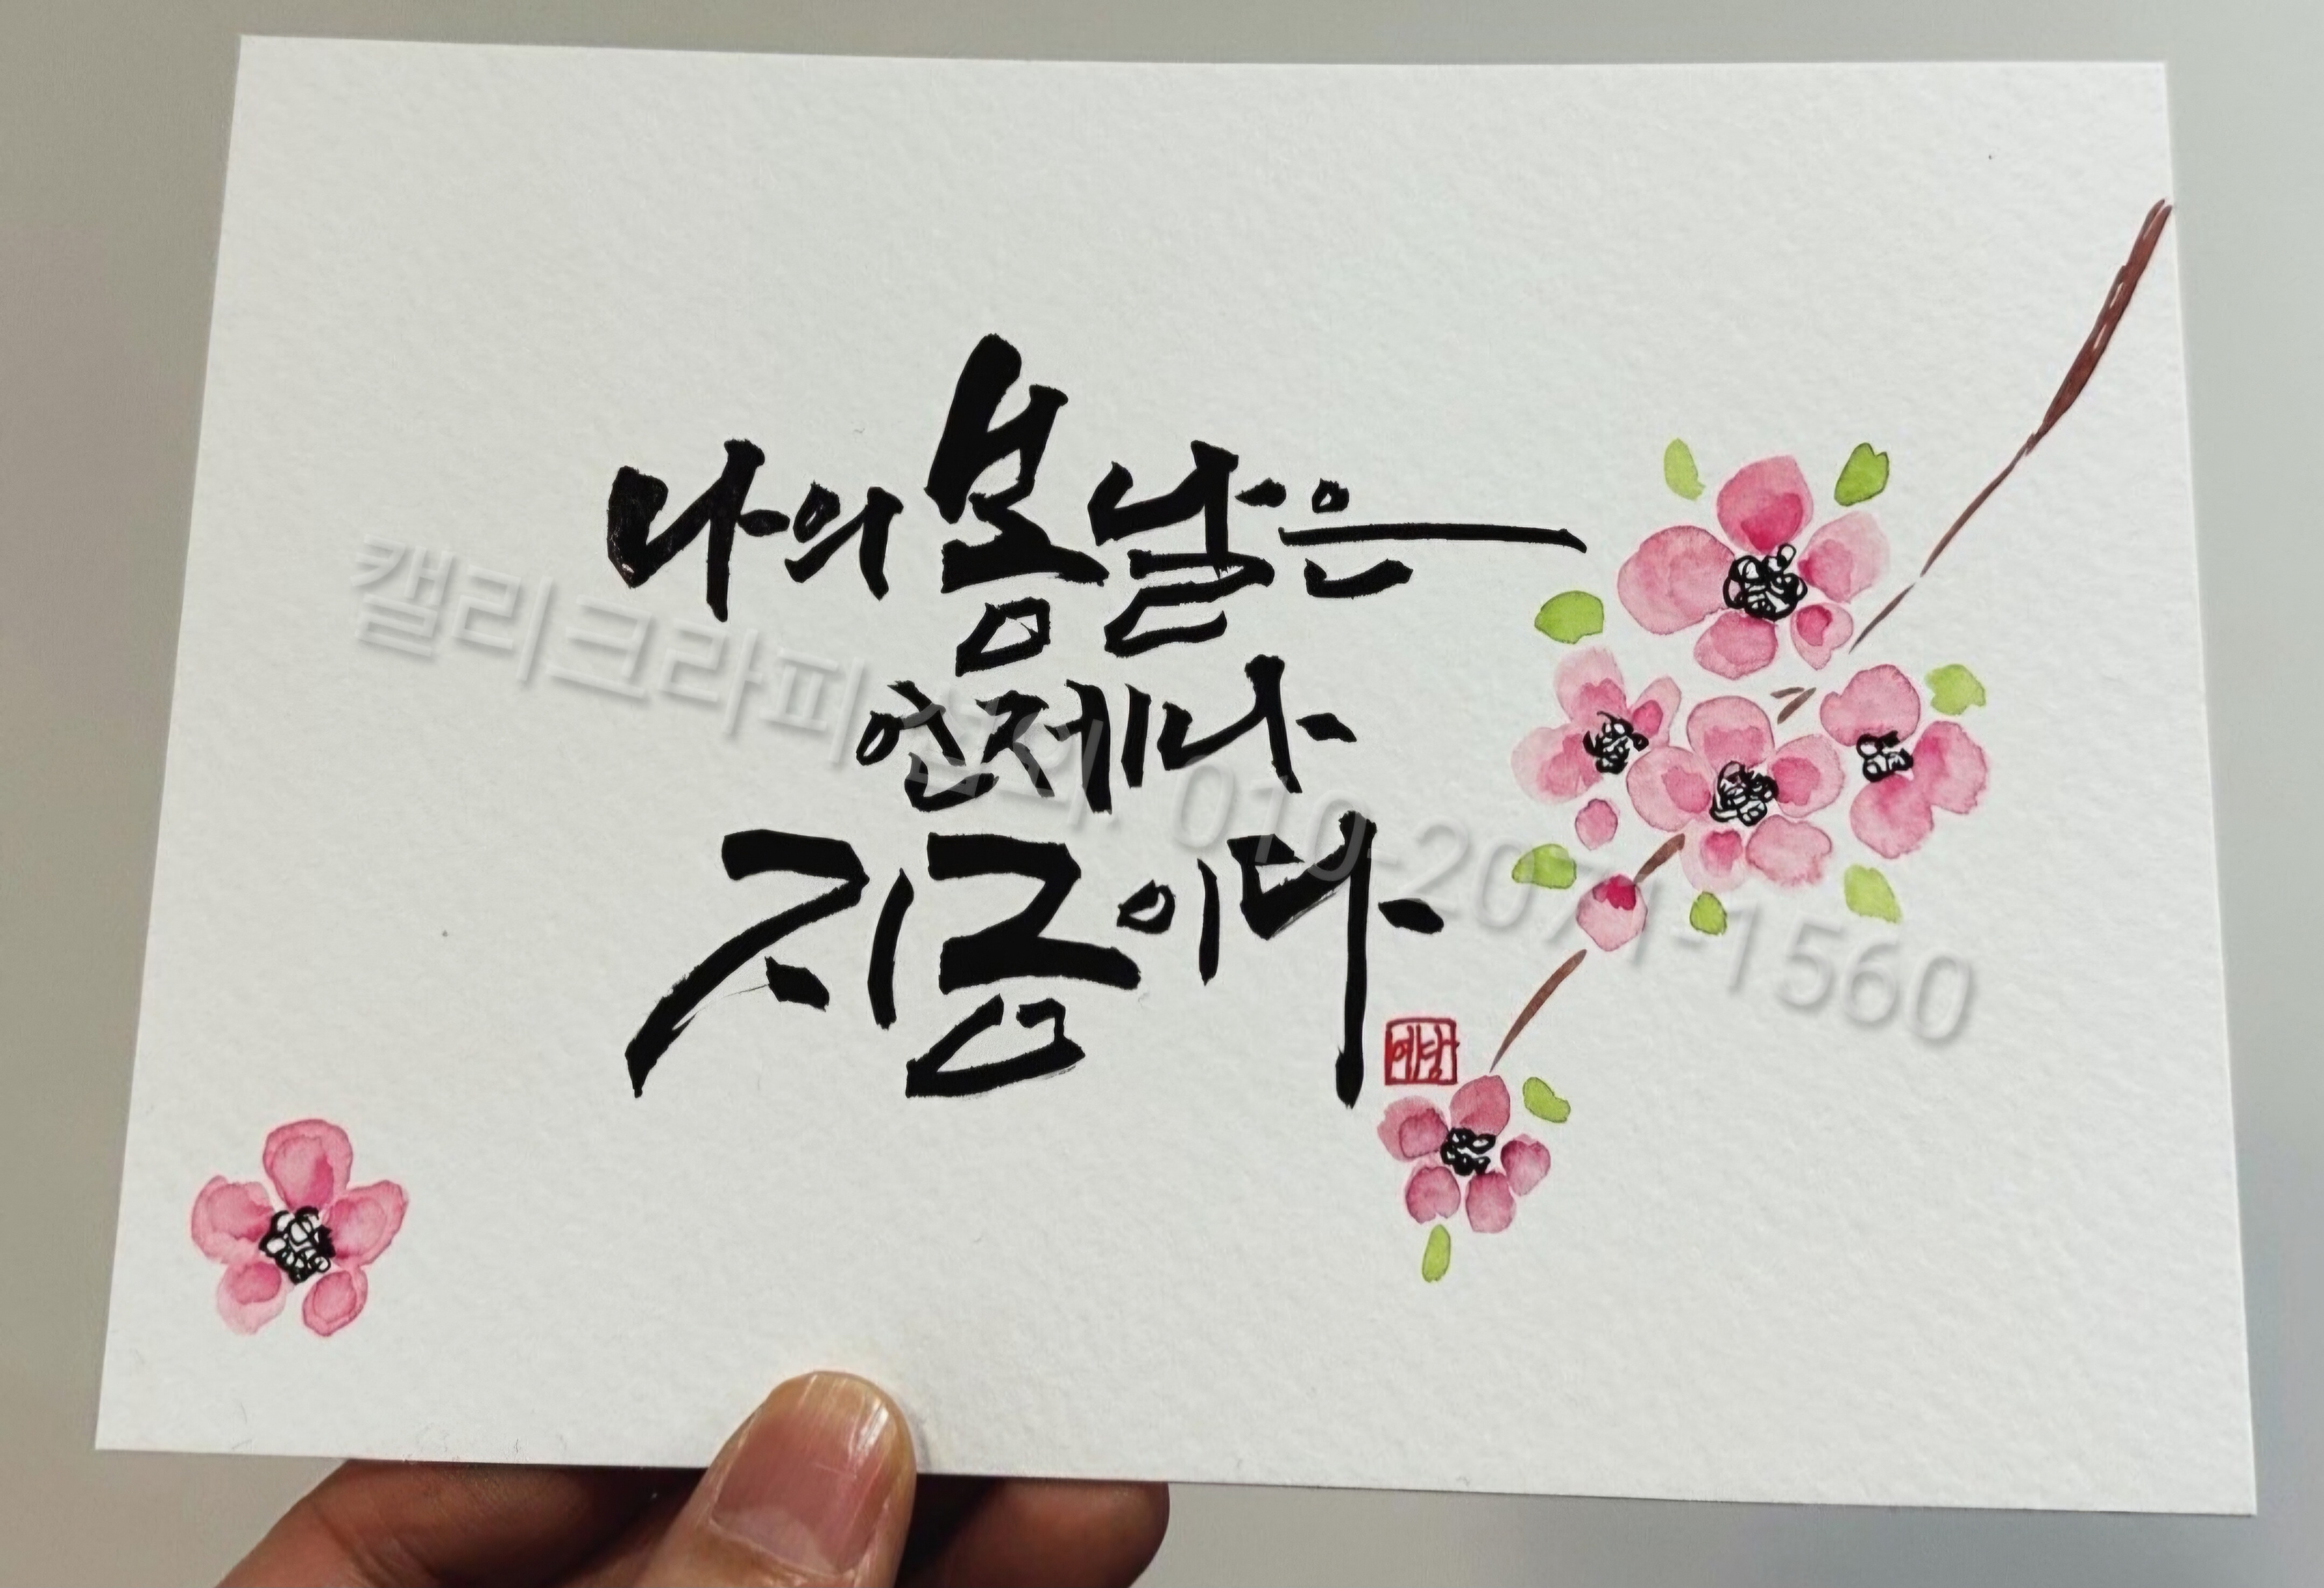 나의 봄날은
언제나
지금이다
캘리크라피 상의. 010-2071-1560